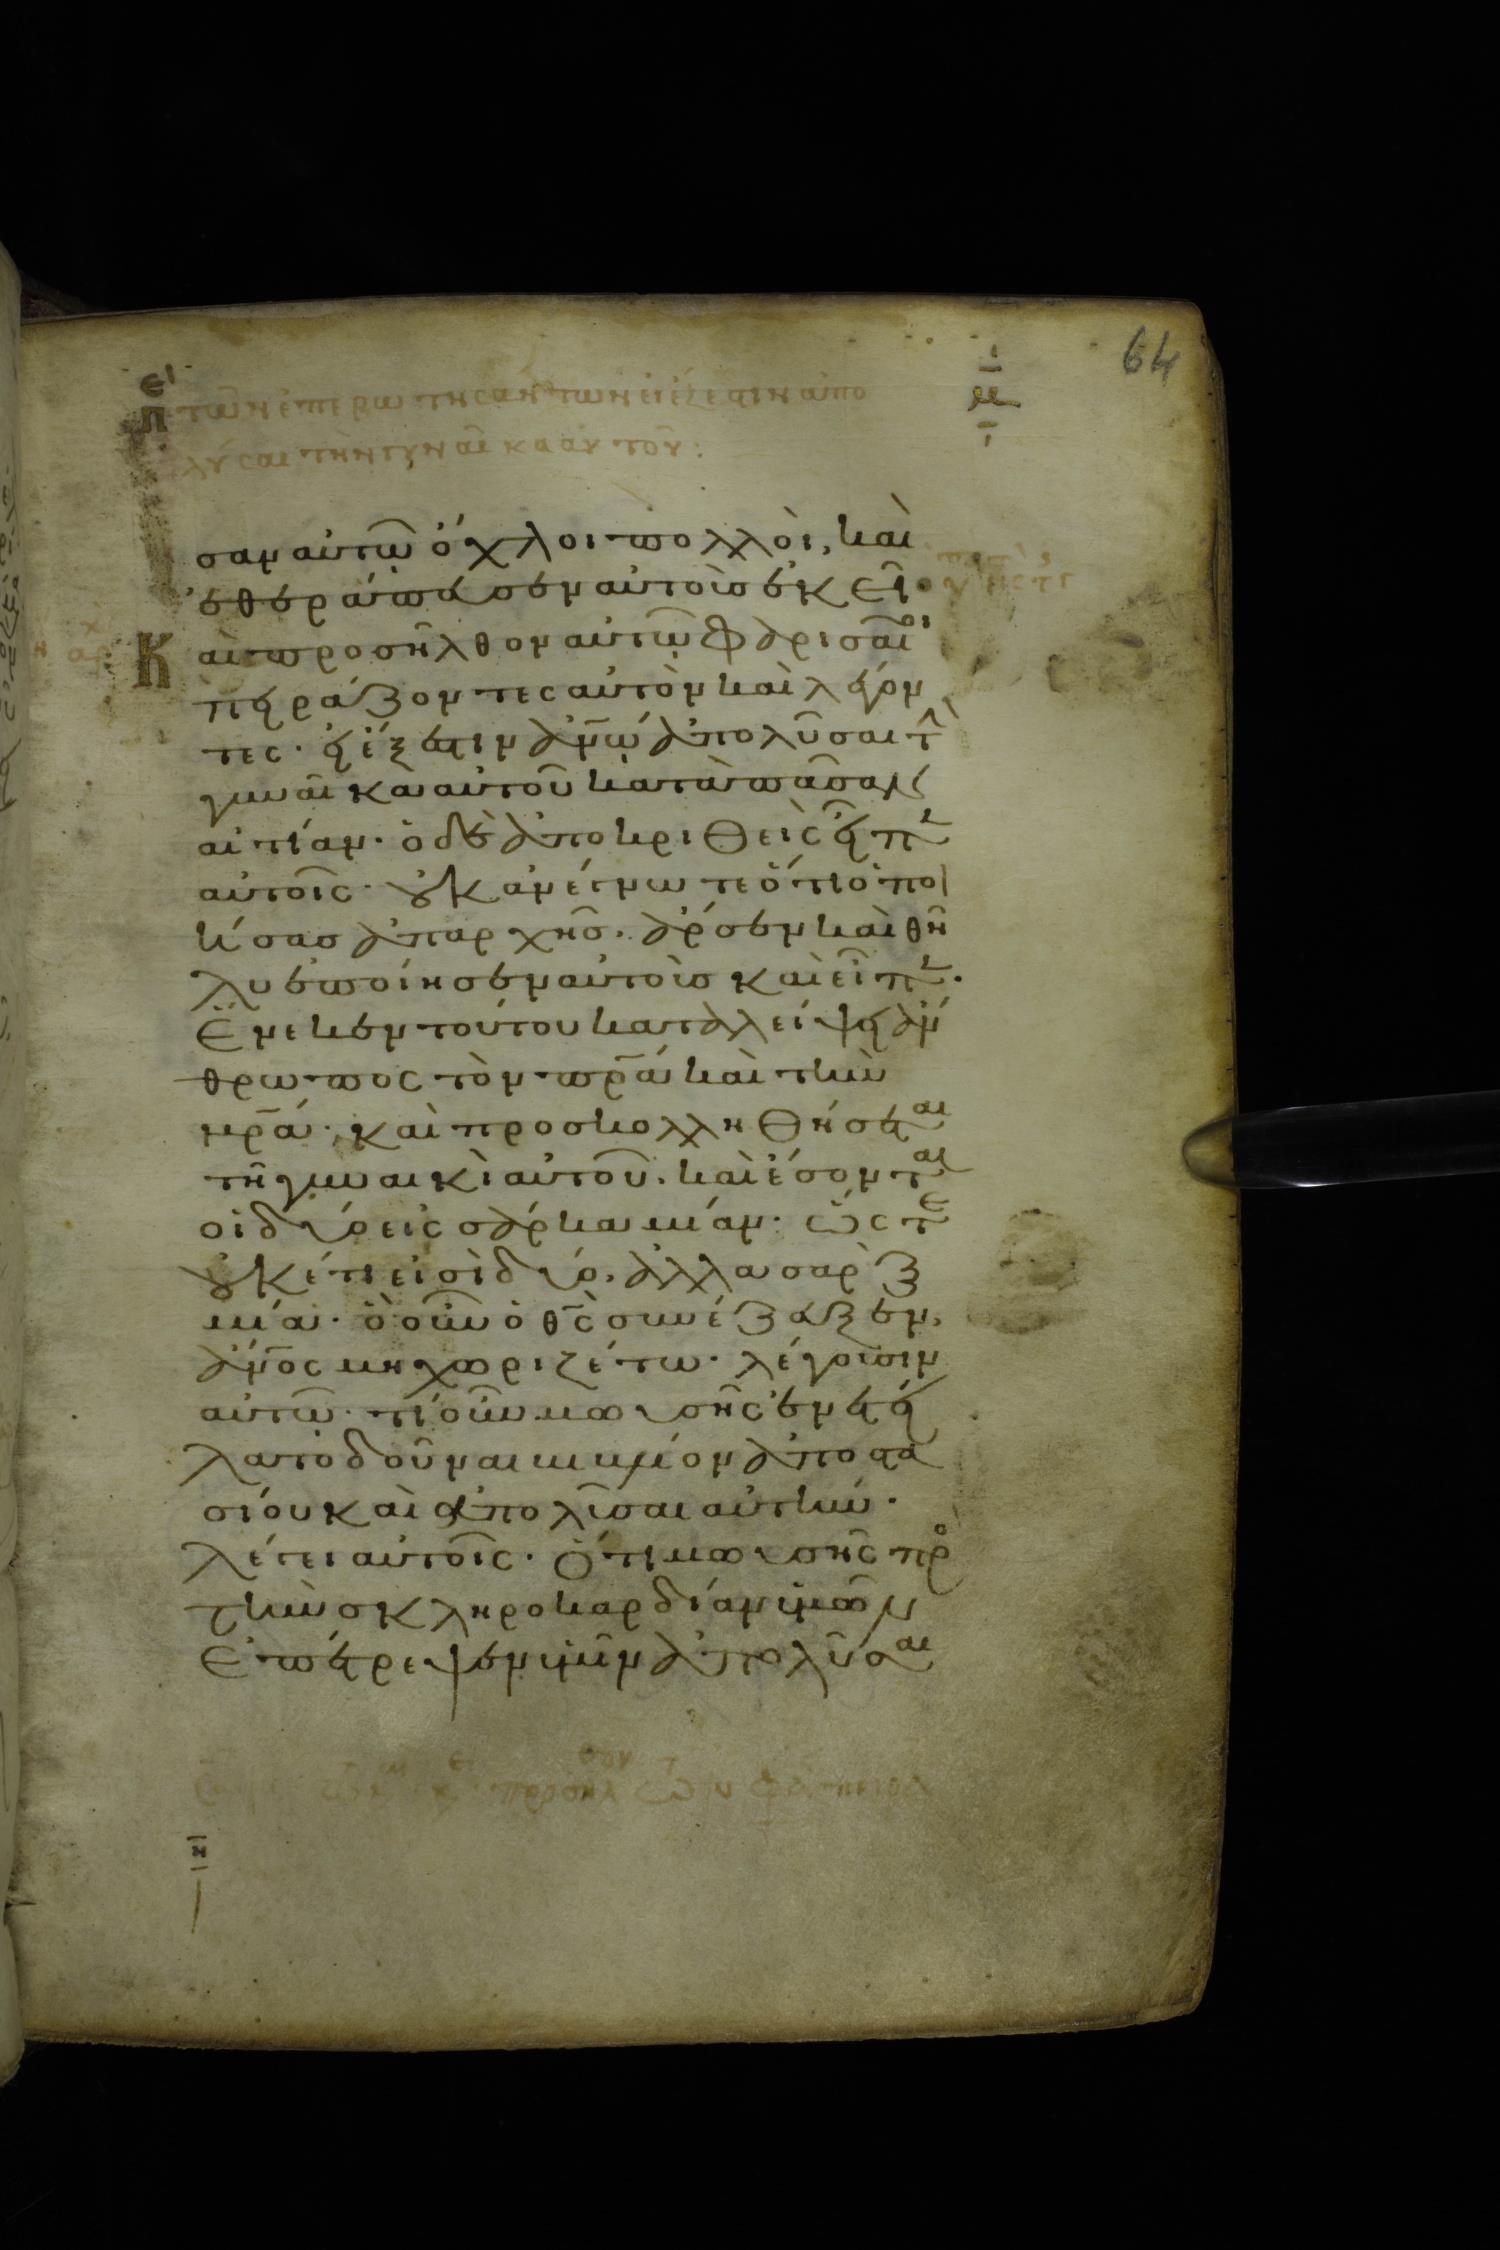 64
Π τῶν ἐπερωτησάντων εἰ ἔξεστιν ἀπο
λύσαι τὴν γυναῖκα αὐτοῦ:
σαν αὐτῶ ὄχλοι πολλοὶ, καὶ
ἐθεράπευσεν αὐτοὺς ἐκεῖ·
Καὶ προσῆλθον αὐτῶ φαρισαῖοι
πειράζοντες αὐτὸν καὶ λέγον
τες· εἰ ἔξεστιν ἀν̅ω ἀπολῦσαι τὴν
γυναῖκα αὐτοῦ κατὰ πᾶσαν
αἰτίαν· ὁ δὲ ἀποκριθεὶς εἶπεν
αὐτοῖς· οὐκ ἀνέγνωτε ὅτι ὁ ποι
ήσας ἀπαρχῆς. ἄρσεν καὶ θῆ
λυ ἐποίησεν αὐτοὺς καὶ εἶπεν·
Ἕνεκεν τούτου καταλείψει ἄν
θρωπος τὸν πρ̅α καὶ τὴν
μρ̅α· καὶ προσκολληθήσεται
τῆ γυναικὶ αὐτοῦ. καὶ ἔσονται
οἱ δύο εἰς σάρκα μίαν· ὥστε
οὐκέτι εἰσὶ δύο, ἀλλα σὰρξ
μία· ὃ οὖν ὁ θ̅ς συνέζευξεν,
ἄν̅ος μη χωριζέτω· λέγουσιν
αὐτῶ· τί οὖν μωυσῆς ἐνετεί
λατο δοῦναι βιβλίον ἀποστα
σίου καὶ ἀπολῦσαι αὐτήν·
λέγει αὐτοῖς· Ὅτι μωυσῆς πρὸς
τὴν σκληροκαρδίαν ὑμῶν
Ἐπέτρεψεν ὑμῖν ἀπολῦσαι